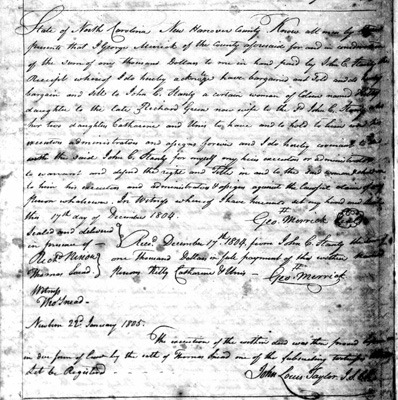 State of North Carolina New Hanover County Know all men by these
presents that I George Merrick of the County aforesaid for and in consideration
of the sum of one thousand Dollars to me in hand paid by John C. Stanly the
Receipt whereof I do hereby acknowledge have bargained and sold and do hereby
bargain and sell to John C. Stanly a certain woman of Colour named Kitty
daughter to the late Richard Green now wife to the sd John C. Stanly and
her two daughters Catharine and Unis to have and to hold to him and his
executors administrators and assigns forever and I do hereby covenant to and
with the said John C Stanly for myself my heirs executors or administrators
to warrant and defend the right and Title in and to the said woman & children
to him his executors and administrators & assigns against the lawful claim of any
Person whatsoever. In Witness whereof I have hereunto set my hand and
this 17th day of December 1804.
Geo. Merrick
Sealed and delivered
in presence of
Recd December 17th 1804, from John C. Stanly
one thousand Dollars in full payment of the within named
Person Kitty Catharine & Unis
Geo. Merrick
Richd Nixon
Thomas Snead
Witness
Thos Snead
Newbern 22d January 1805.
The execution of the within deed was then proved before me
in due form of Law by the oath of Thomas Snead one of the subscribing witnesses
Let be Registered
John Louis Taylor J.S.C.